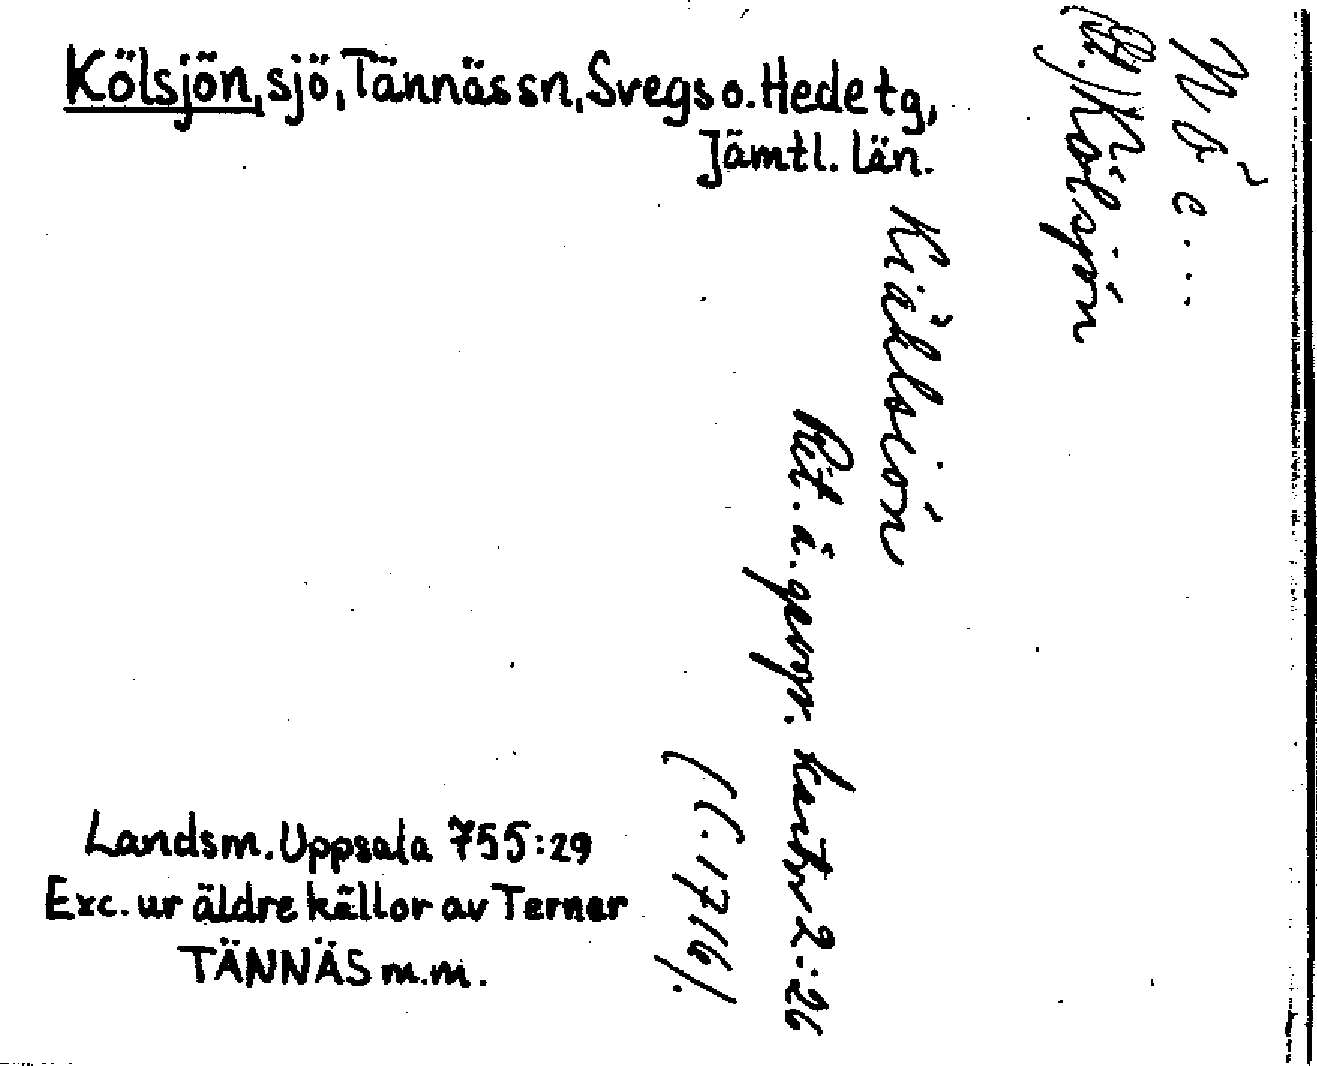 Kölsjön, sjö, Tännäs sn, Svegs o. Hede tg,
Jämtl. län.
N ö e...
Kölsjön
Kiällsiön
Rit. å. geogr. kartv 2:26
(C. 1716).
Landsm. Uppsala 755:29
Exc. ur äldre källor av Terner
TÄNNÄS m.m.